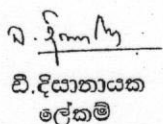 ඩී.දියානායක
ලේකම්